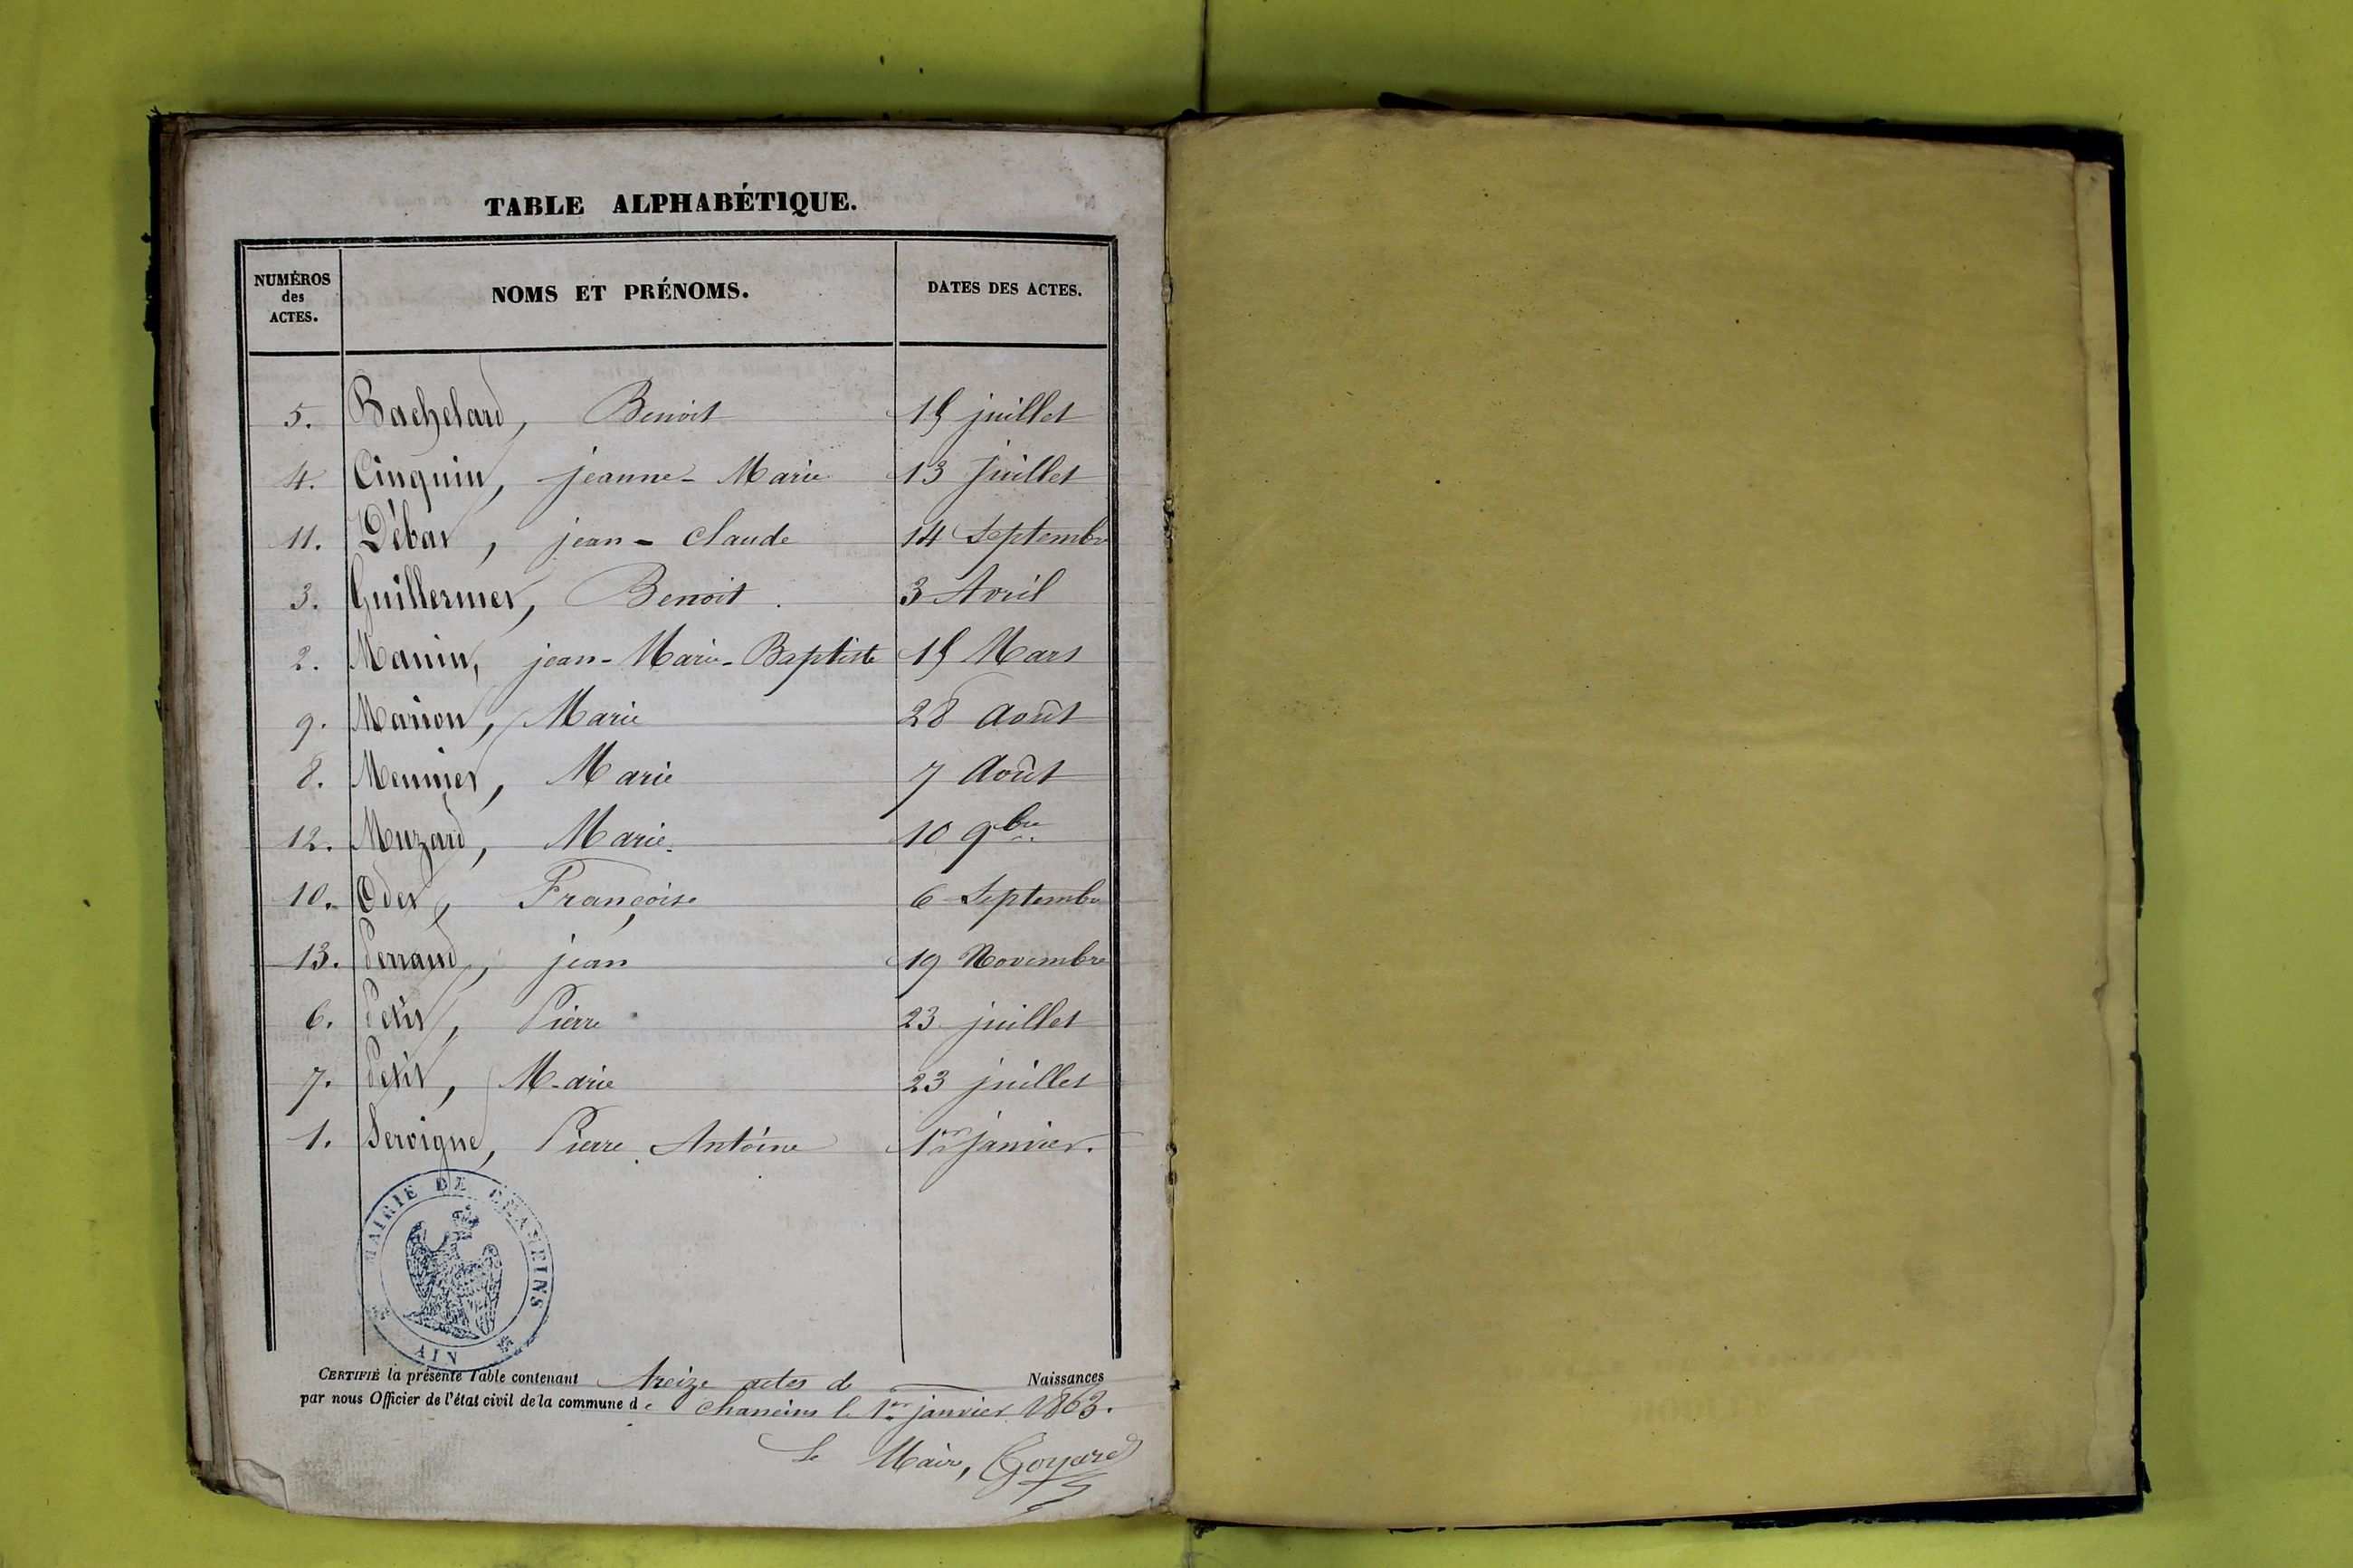 TABLE ALPHABÉTIQUE.
NUMÉROS
des
ACTES.
NOMS ET PRÉNOMS.
DATES DES ACTES.
5. Bachelard, Benoit 15 juillet
4. Cinquin, jeanne-Marie 13 juillet
11. Débar, jean-Claude 14 Septembre
3. Guillermet, Benoit. 3 Avril
2. Manin, jean-Marie-Baptiste 15 Mars
9. Marion, Marie 28 Août
8. Meunier, Marie 7 Août
12. Muzard, Marie. 10 9bre
10. Odet, Françoise 6 Septembre
13. Perraud, jean 19 Novembre
6. Petit, Pierre 23 juillet
7. Petit, Marie 23 juillet
1. Servigne, Pierre Antoine 1er janvier.
MAIRIE DE CHANEINS
AIN
CERTIFIÉ la présente Table contenant treize actes de Naissances
par nous Officier de l'état civil de la commune de Chaneins le 1er janvier 1863.
Le Maire, Goyard